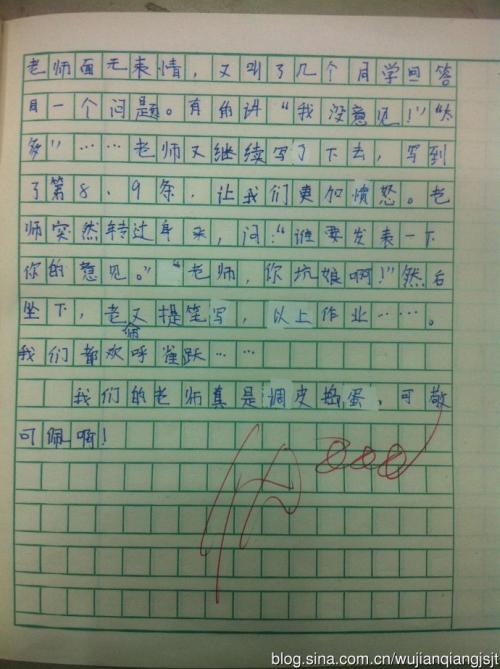 老师面无表情，又叫了几个同学回答
同一个问题。有的讲“我没意见！”“太
多”……老师又继续写了下去，写到
了第8、9条，让我们更加愤怒。老
师突然转过身来，问：“谁要发表一下
你的意见。”“老师，你坑娘啊！”然后
坐下，老师又提笔写，以上作业……。
我们都欢呼雀跃……
我们的老师真是调皮捣蛋，可敬
可佩啊！
blog.sina.com.cn/wujianqiangjsjt